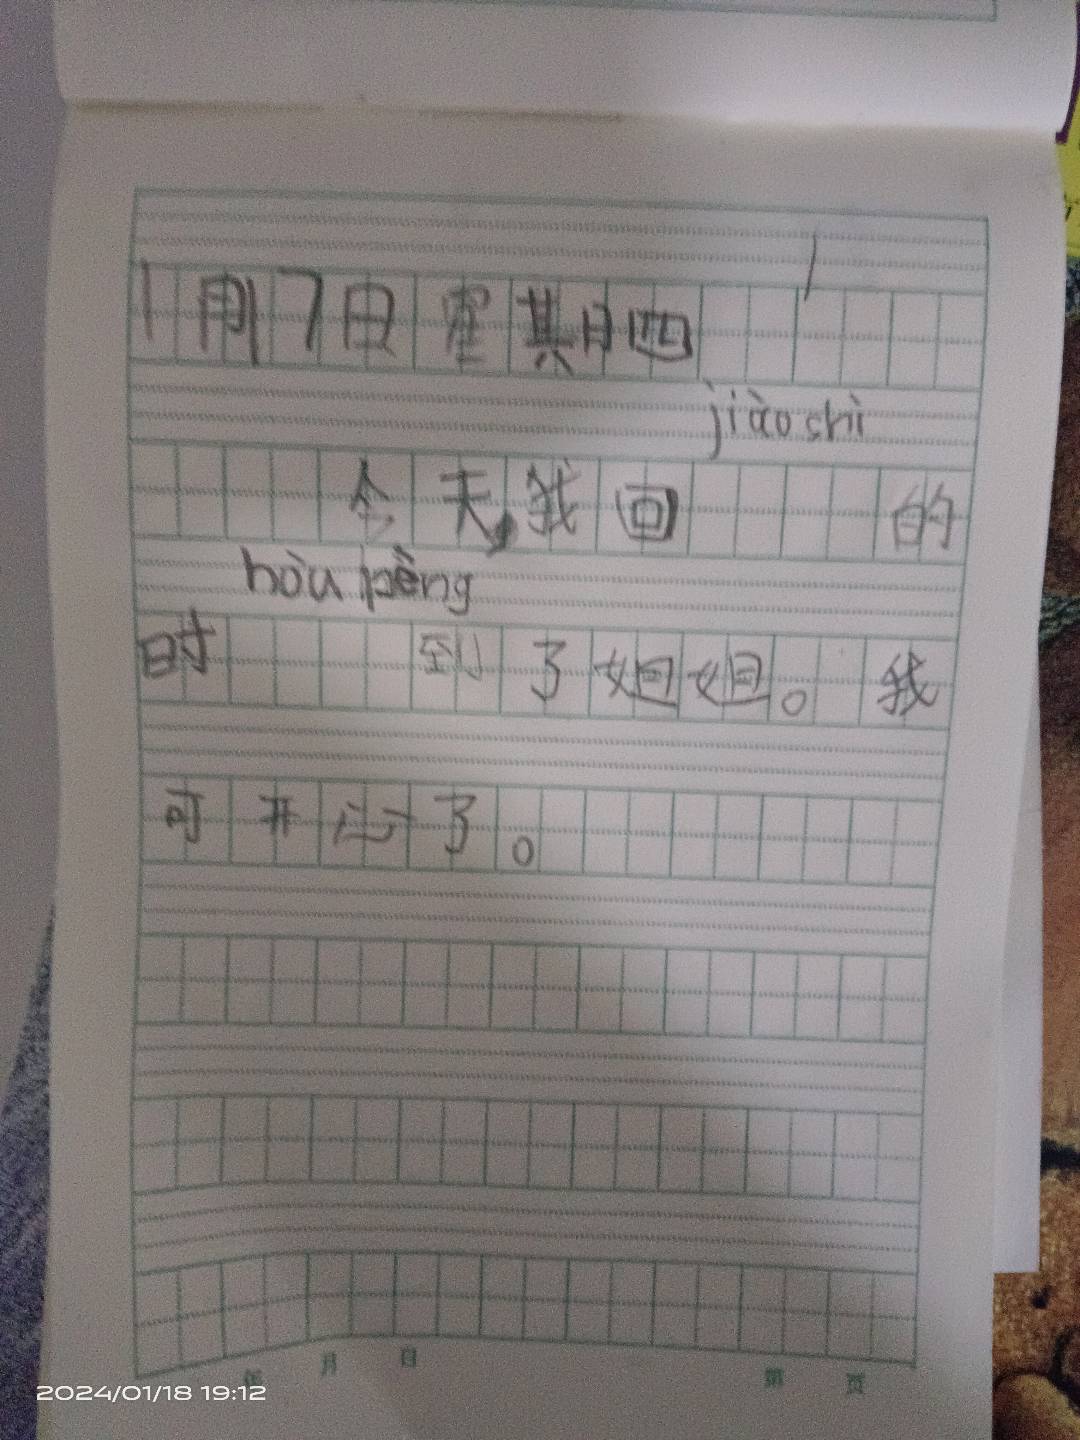 1月17日星期四
jiàoshì
今天,我回 的
hòu pèng
时 到了姐姐。我
可开心了。
年 月 日 第 页
2024/01/18 19:12